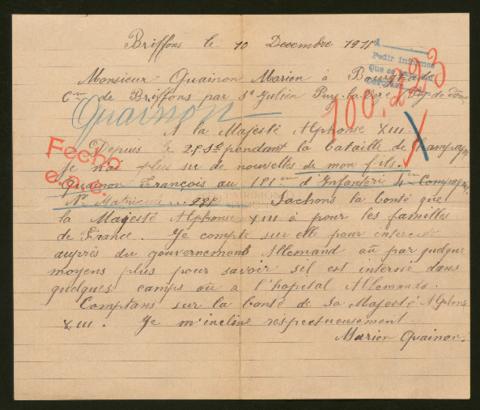 Briffons le 10 Decembre 191
Monsieur Quainon Marien à
Cne de Briffons par St Julien Puy-Lavèze Puy-de-Dome
Pedir informes
Quainon
100,223
A la Majesté Alphonse XIII
Depuis le 25 Sb pendant la bataille de Champagne
je n'ai plus su de nouvelles de mon fils.
Fecho
Quainon François au 121em d'Infanterie 4em Compagnie
No Matricule Sachons la bonté que
la Majesté Alphonse XIII à pour les familles
de France. Je compte sur elle pour intercéder
auprès du gouvernement Allemand où par quelque
moyens plus pour savoir sil est interné dans
quelques camps où a l'hopital Allemands.
Comptans sur la bonté de Sa Majesté Alphons
XIII. Je m'incline respectueusement
Marien Quainon.